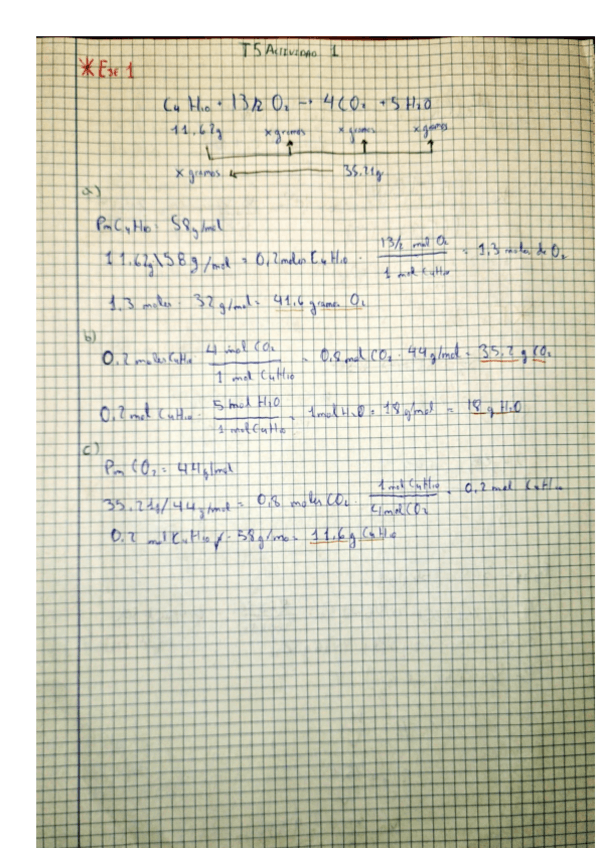 T5 Actividad 1
* Eje 1
C4 H10 + 13/2 O2 → 4CO2 + 5H2O
11.62g x gramos x gramos x gramos
x gramos 35.21g
a)
Pm C4H10 = 58g/mol
11.62g\58g/mol = 0,2moles C4H10 · 13/2 mol O2 / 1 mol C4H10 = 1,3 moles de O2
1.3 moles · 32g/mol = 41,6 gramos O2
b)
0.2 moles C4H10 · 4 mol CO2 / 1 mol C4H10 = 0.8 mol CO2 · 44g/mol = 35.2 g CO2
0.2 mol C4H10 · 5 mol H2O / 1 mol C4H10 = 1mol H2O = 18g/mol = 18 g H2O
c)
Pm CO2 = 44g/mol
35.21g/44g/mol = 0,8 moles CO2 · 1 mol C4H10 / 4mol CO2 = 0,2 mol C4H10
0.2 mol C4H10 · 58g/mo = 11.6g C4H10